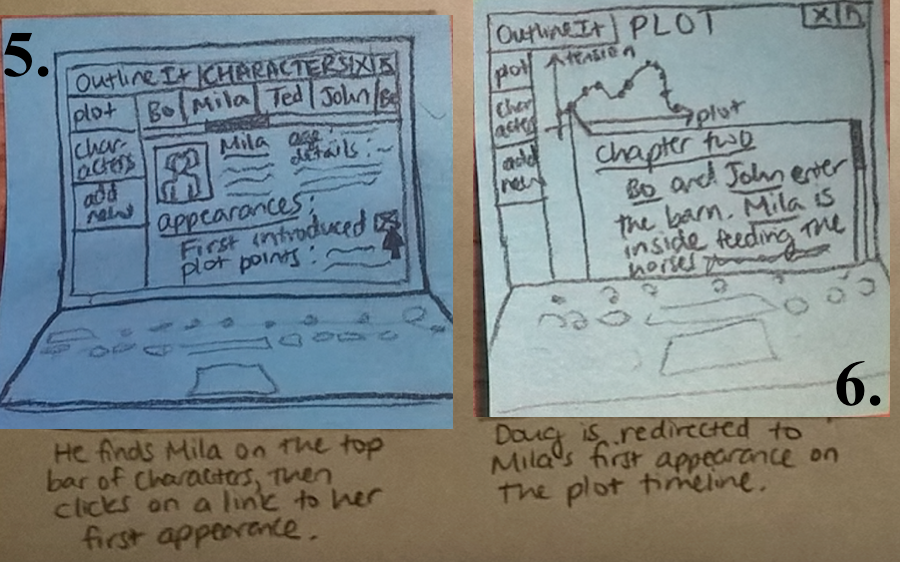 5.
OutlineIt CHARACTERS X
plot
Bo Mila Ted John Be
char-
acters
add
new
Mila age:
details:
appearances:
First introduced
plot points:
He finds Mila on the top
bar of characters, then
clicks on a link to her
first appearance.
OutlineIt PLOT X
plot
char
acters
add
new
tension
plot
Chapter two
Bo and John enter
the barn. Mila is
inside feeding the
horses
6.
Doug is redirected to
Mila's first appearance on
the plot timeline.